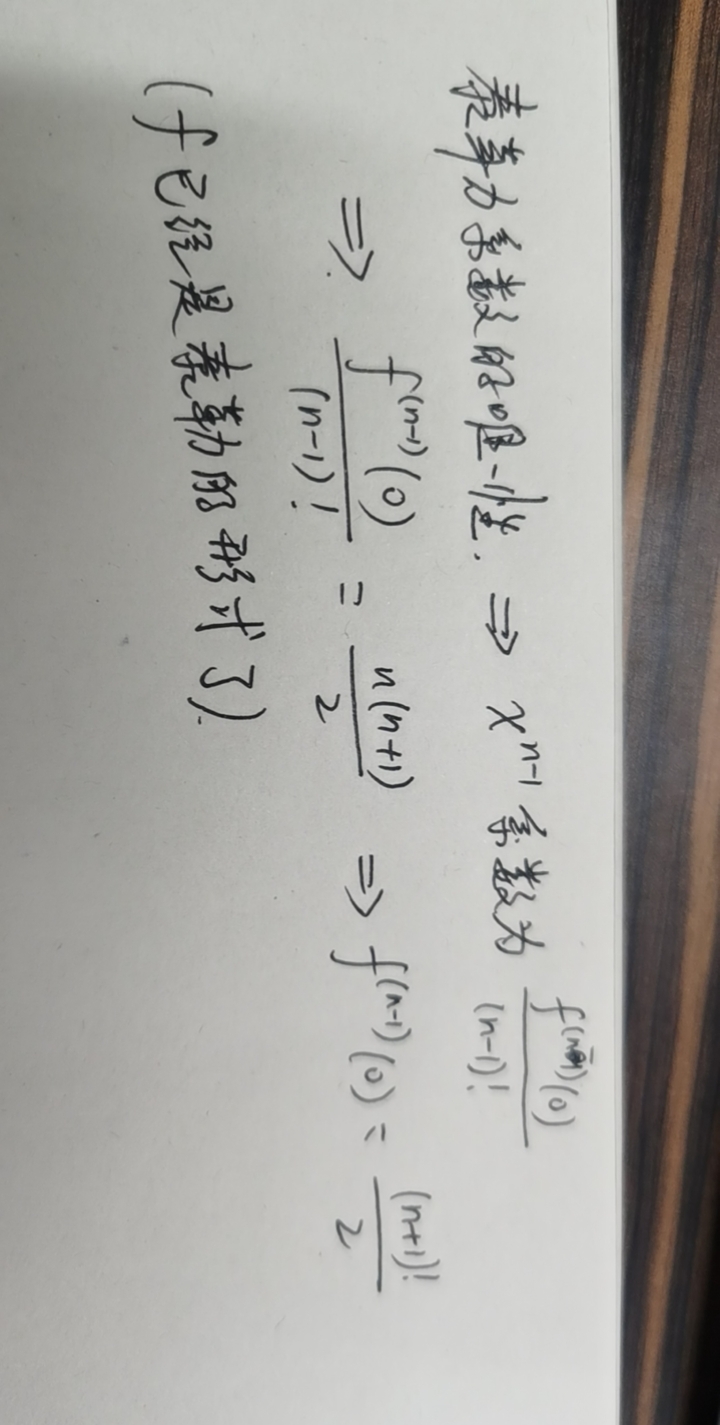 泰勒系数的唯一性. ⇒ x^{n-1} 系数为 \frac{f^{(n-1)}(0)}{(n-1)!}
⇒ \frac{f^{(n-1)}(0)}{(n-1)!} = \frac{n(n+1)}{2} ⇒ f^{(n-1)}(0) = \frac{(n+1)!}{2}
(f 已经是泰勒的形式了).